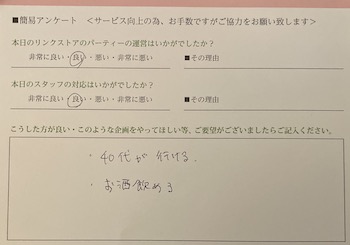 ■簡易アンケート <サービス向上の為、お手数ですがご協力をお願い致します>
本日のリンクストアのパーティーの運営はいかがでしたか?
非常に良い・良い・悪い・非常に悪い ■その理由
本日のスタッフの対応はいかがでしたか?
非常に良い・良い・悪い・非常に悪い ■その理由
こうした方が良い・このような企画をやってほしい等、ご要望がございましたらご記入ください。
・40代が行ける
・お酒飲める